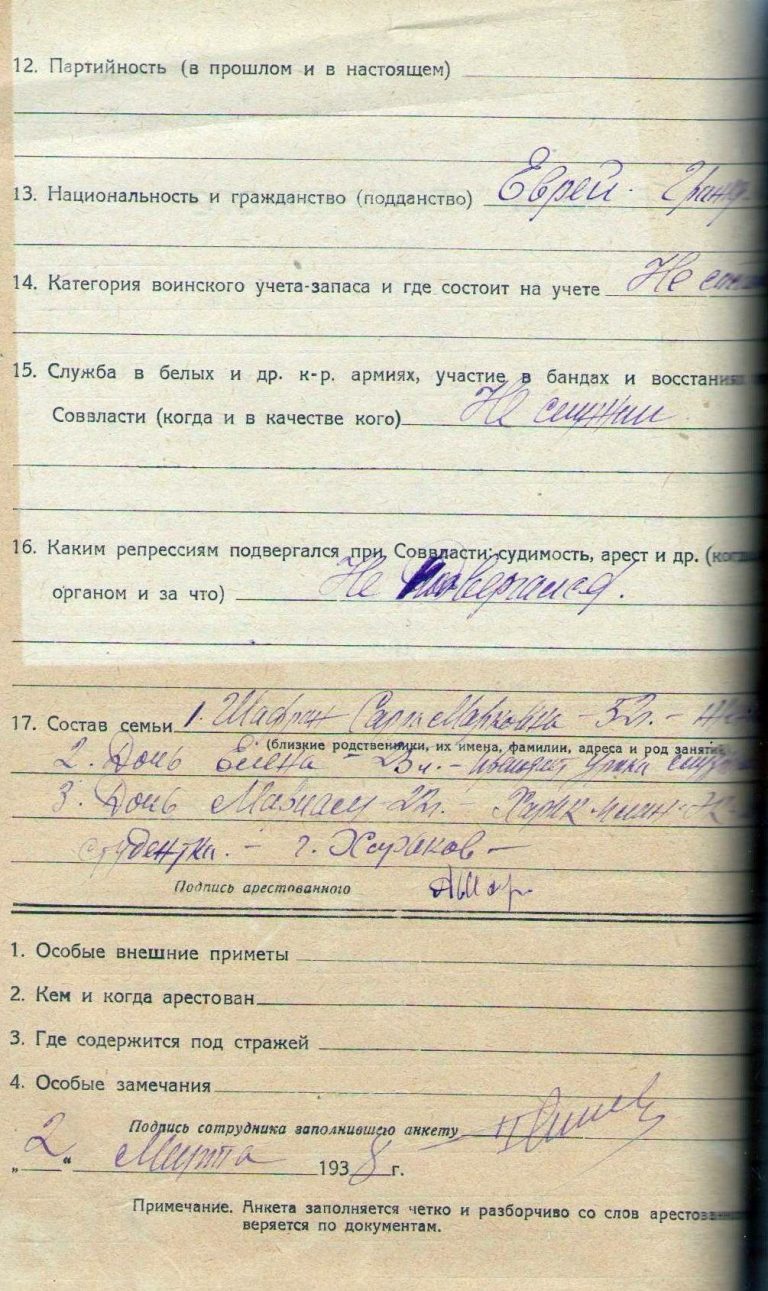 12. Партийность (в прошлом и в настоящем)
13. Национальность и гражданство (подданство) Еврей. Гражд
14. Категория воинского учета-запаса и где состоит на учете Не сост
15. Служба в белых и др. к-р. армиях, участие в бандах и восстаниях
Соввласти (когда и в качестве кого) Не служил
16. Каким репрессиям подвергался при Соввласти: судимость, арест и др. (когда
органом и за что) Не подвергался.
17. Состав семьи 1. Шафран Сарра Марковна – 52 г. –
(близкие родственники, их имена, фамилии, адреса и род занятий
2. Дочь Елена –
3. Дочь 22 г. –
студентка. – г. Харьков –
Подпись арестованного
1. Особые внешние приметы
2. Кем и когда арестован
3. Где содержится под стражей
4. Особые замечания
Подпись сотрудника заполнившего анкету
„2“ Марта 1938 г.
Примечание. Анкета заполняется четко и разборчиво со слов арестован
веряется по документам.